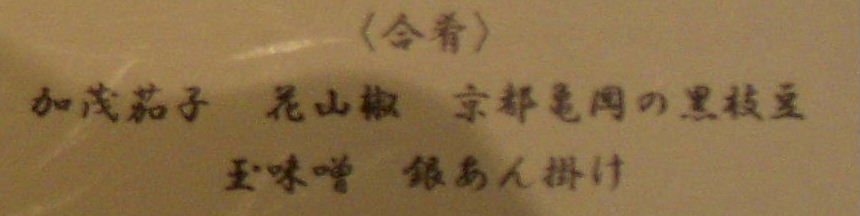 〈合肴〉
加茂茄子　花山椒　京都亀岡の黒枝豆
玉味噌　銀あん掛け